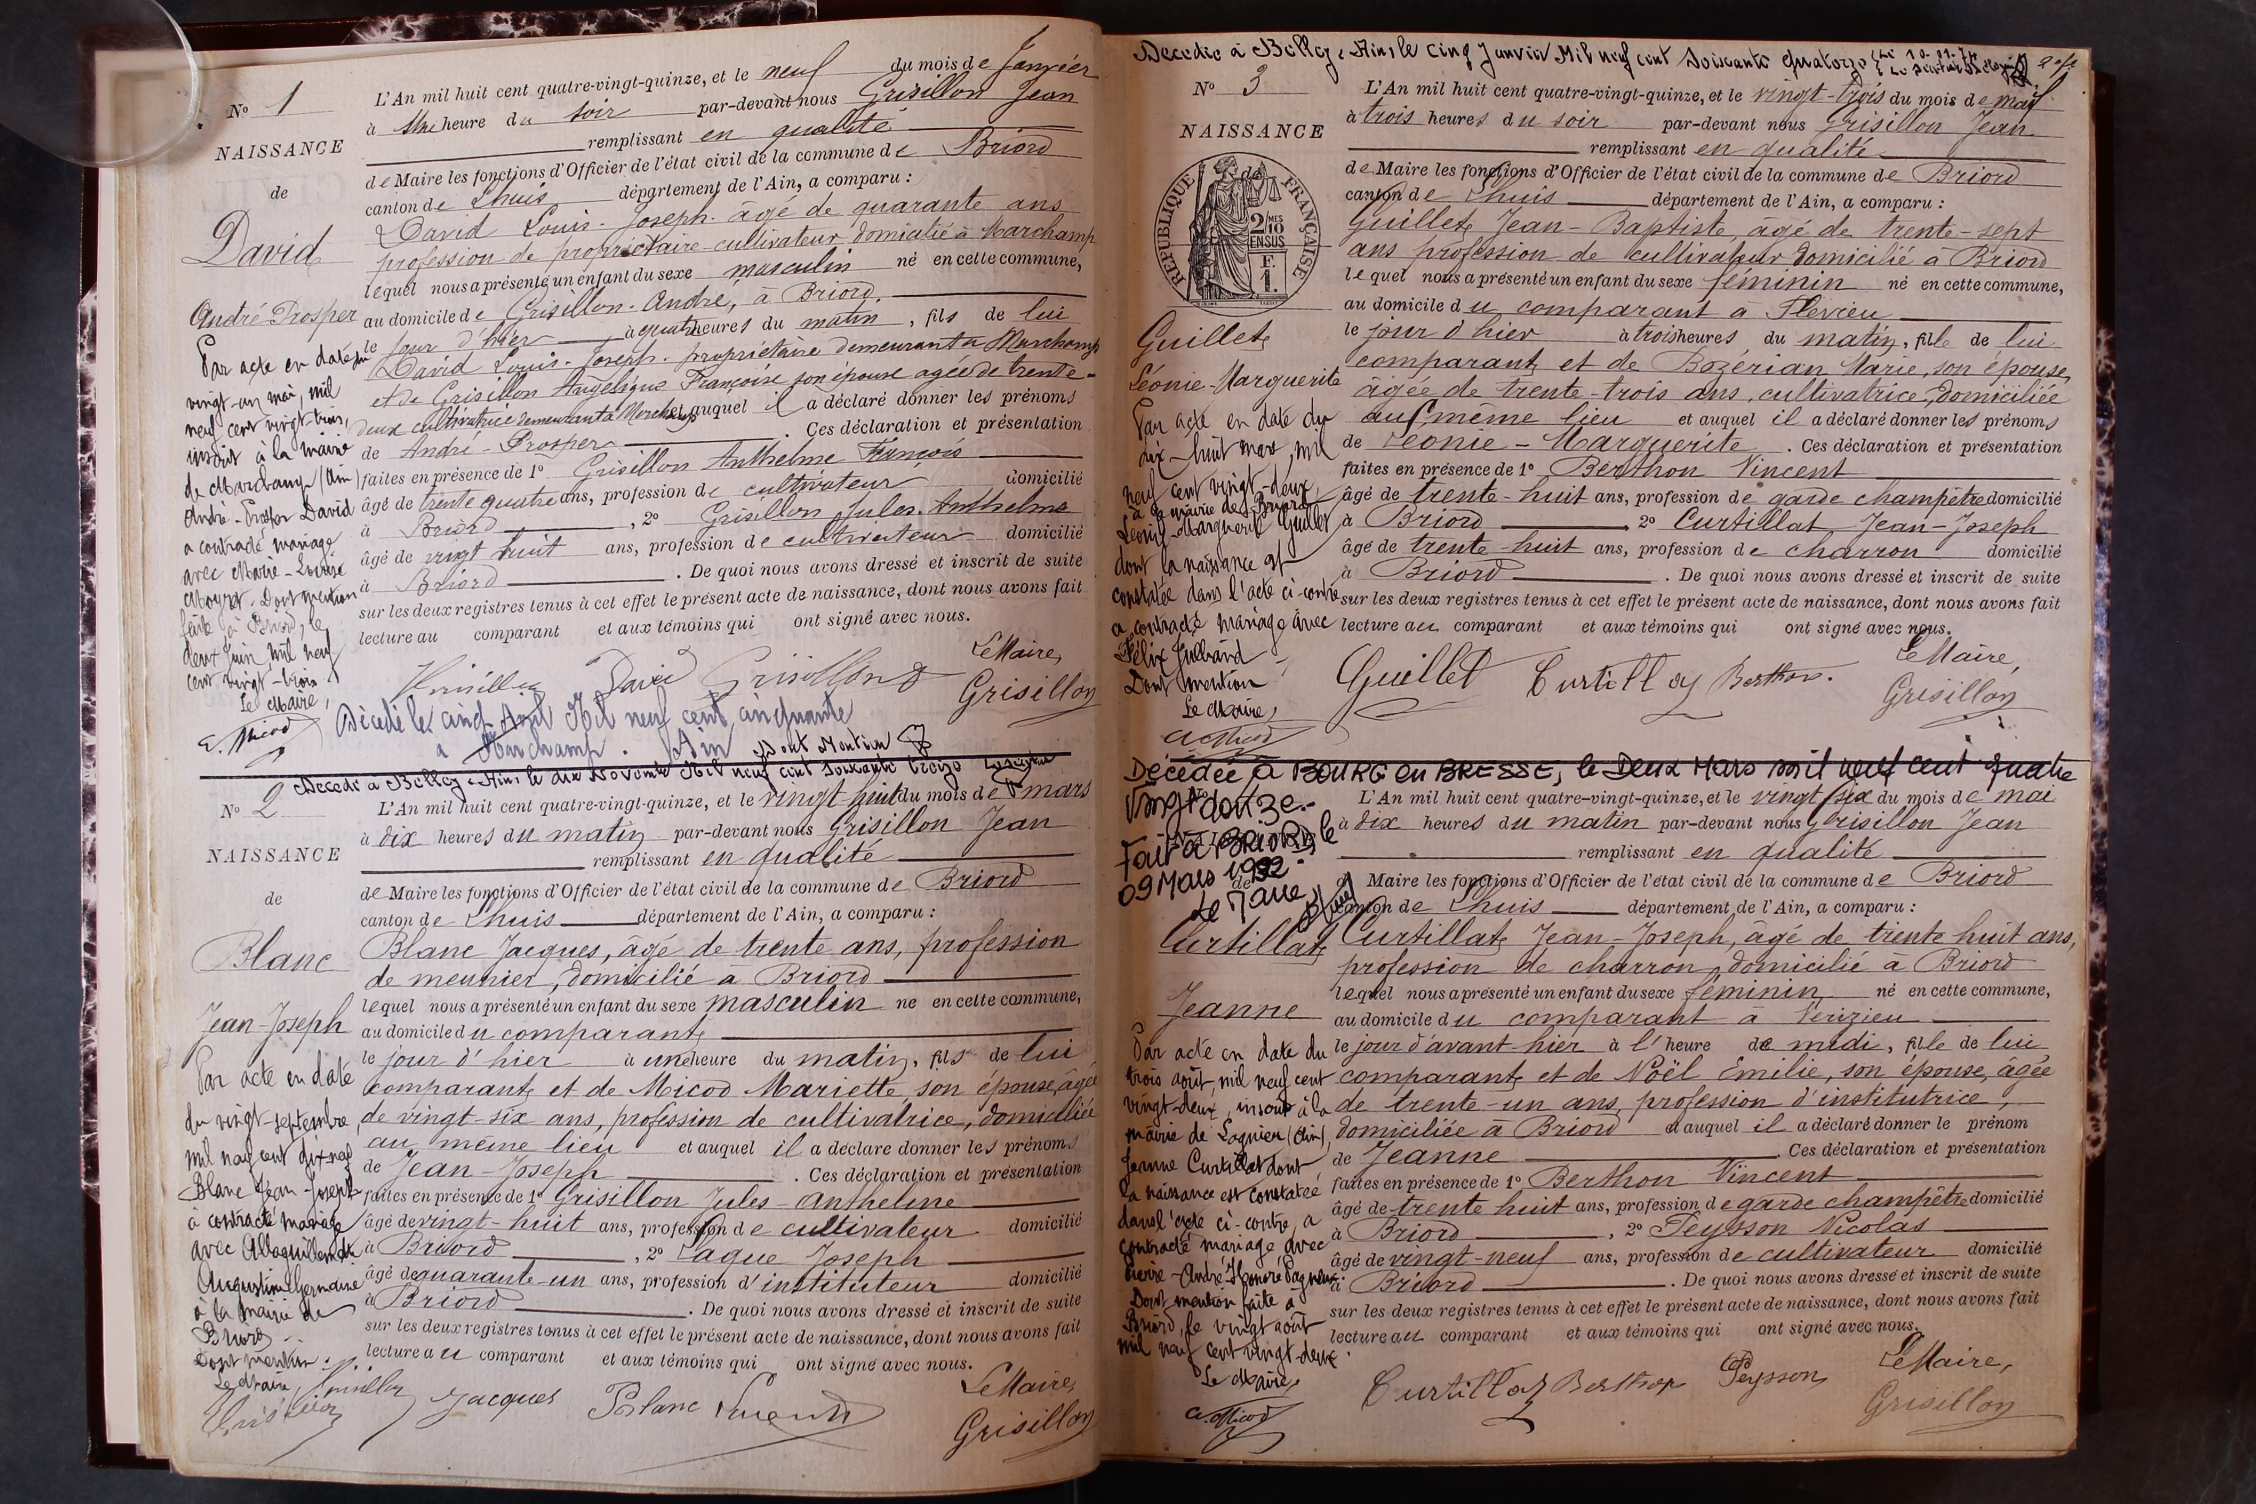 No 1
NAISSANCE
de
David
André Prosper
L'An mil huit cent quatre-vingt-quinze, et le neuf du mois de Janvier
à une heure du soir par-devant nous Grisillon Jean
remplissant en qualité
de Maire les fonctions d'Officier de l'état civil de la commune de Briord
canton de Lhuis département de l'Ain, a comparu :
David Louis-Joseph âgé de quarante ans
profession de propriétaire-cultivateur domicilié à Marchamp
lequel nous a présenté un enfant du sexe masculin né en cette commune,
au domicile de Grisillon André, à Briord,
le jour d'hier à quatre heures du matin, fils de lui
David Louis-Joseph propriétaire demeurant à Marchamp
et de Grisillon Angélique Françoise son épouse agée de trente-
deux cultivatrice demeurant à Marchamp et auquel il a déclaré donner les prénoms
de André-Prosper. Ces déclaration et présentation
faites en présence de 1o Grisillon Anthelme François
âgé de trente quatre ans, profession de cultivateur domicilié
à Briord, 2o Grisillon Jules Anthelme
âgé de vingt huit ans, profession de cultivateur domicilié
à Briord. De quoi nous avons dressé et inscrit de suite
sur les deux registres tenus à cet effet le présent acte de naissance, dont nous avons fait
lecture au comparant et aux témoins qui ont signé avec nous.
Le Maire,
David Grisillon
Grisillon
Par acte en date du
vingt-un mai, mil
neuf cent vingt-trois,
inscrit à la mairie
de Marchamp (Ain)
André-Prosper David
a contracté mariage
avec Marie-Louise
Dont mention
faite à Briord, le
deux Juin mil neuf
cent vingt-trois
Le Maire,
Micod
Décédé le cinq Août Mil neuf cent cinquante
à Marchamp. Ain Dont Mention
Décédé à Belley-Ain, le dix Novembre Mil neuf cent soixante treize
No 2
NAISSANCE
de
Blanc
Jean-Joseph
L'An mil huit cent quatre-vingt-quinze, et le vingt huit du mois de mars
à dix heures du matin par-devant nous Grisillon Jean
remplissant en qualité
de Maire les fonctions d'Officier de l'état civil de la commune de Briord
canton de Lhuis département de l'Ain, a comparu :
Blanc Jacques, âgé de trente ans, profession
de meunier, domicilié à Briord
lequel nous a présenté un enfant du sexe masculin né en cette commune,
au domicile du comparant
le jour d'hier à une heure du matin, fils de lui
comparant et de Micod Mariette, son épouse, âgée
de vingt-six ans, profession de cultivatrice, domiciliée
au même lieu et auquel il a déclaré donner les prénoms
de Jean-Joseph. Ces déclaration et présentation
faites en présence de 1o Grisillon Jules-Anthelme
âgé de vingt-huit ans, profession de cultivateur domicilié
à Briord, 2o Laque Joseph
âgé de quarante-un ans, profession d'instituteur domicilié
à Briord. De quoi nous avons dressé et inscrit de suite
sur les deux registres tenus à cet effet le présent acte de naissance, dont nous avons fait
lecture au comparant et aux témoins qui ont signé avec nous.
Le Maire,
Jacques Blanc
Grisillon
Par acte en date
du vingt-septembre
mil neuf cent dix neuf
Blanc Jean-Joseph
a contracté mariage
avec
Augustine Germaine
à la mairie de
Briord
Dont mention
Le Maire,
Décédée à Belley-Ain, le cinq Janvier Mil neuf cent Soixante Quatorze
No 3
NAISSANCE
de
RÉPUBLIQUE FRANÇAISE
2 MES
10
EN SUS
F.
1.
Guillet
Léonie-Marguerite
L'An mil huit cent quatre-vingt-quinze, et le vingt-trois du mois de mai
à trois heures du soir par-devant nous Grisillon Jean
remplissant en qualité
de Maire les fonctions d'Officier de l'état civil de la commune de Briord
canton de Lhuis département de l'Ain, a comparu :
Guillet Jean-Baptiste, âgé de trente-sept
ans profession de cultivateur domicilié à Briord
lequel nous a présenté un enfant du sexe féminin né en cette commune,
au domicile du comparant à Flévieu
le jour d'hier à trois heures du matin, fille de lui
comparant et de Bozérian Marie, son épouse,
âgée de trente-trois ans, cultivatrice, domiciliée
au même lieu et auquel il a déclaré donner les prénoms
de Léonie-Marguerite. Ces déclaration et présentation
faites en présence de 1o Berthon Vincent
âgé de trente-huit ans, profession de garde champêtre domicilié
à Briord 2o Curtillat Jean-Joseph
âgé de trente-huit ans, profession de charron domicilié
à Briord. De quoi nous avons dressé et inscrit de suite
sur les deux registres tenus à cet effet le présent acte de naissance, dont nous avons fait
lecture au comparant et aux témoins qui ont signé avec nous.
Le Maire,
Guillet Curtillat Berthon
Grisillon
Par acte en date du
dix-huit mars, mil
neuf cent vingt-deux,
à la mairie de Briord
Léonie-Marguerite Guillet
dont la naissance est
constatée dans l'acte ci-contre
a contracté mariage avec
Félix
Dont mention
Le Maire,
Décédée à BOURG en BRESSE, le Deux Mars mil neuf cent quatre
Vingt douze.-
Fait à BRIORD, le
09 Mars 1992.
Le Maire
NAISSANCE
de
Curtillat
Jeanne
L'An mil huit cent quatre-vingt-quinze, et le vingt six du mois de mai
à dix heures du matin par-devant nous Grisillon Jean
remplissant en qualité
de Maire les fonctions d'Officier de l'état civil de la commune de Briord
canton de Lhuis département de l'Ain, a comparu :
Curtillat Jean-Joseph, âgé de trente huit ans,
profession de charron, domicilié à Briord
lequel nous a présenté un enfant du sexe féminin né en cette commune,
au domicile du comparant à Vérizieu
le jour d'avant-hier à l'heure de midi, fille de lui
comparant et de Noël Emilie, son épouse, âgée
de trente-un ans, profession d'institutrice,
domiciliée à Briord et auquel il a déclaré donner le prénom
de Jeanne. Ces déclaration et présentation
faites en présence de 1o Berthon Vincent
âgé de trente huit ans, profession de garde champêtre domicilié
à Briord, 2o Peysson Nicolas
âgé de vingt-neuf ans, profession de cultivateur domicilié
à Briord. De quoi nous avons dressé et inscrit de suite
sur les deux registres tenus à cet effet le présent acte de naissance, dont nous avons fait
lecture au comparant et aux témoins qui ont signé avec nous.
Le Maire,
Curtillat Berthon Peysson
Grisillon
Par acte en date du
trois août, mil neuf cent
vingt-deux, inscrit à la
mairie de Lagnieu (Ain),
Jeanne Curtillat dont
la naissance est constatée
dans l'acte ci-contre, a
contracté mariage avec
Pierre-André Honoré Pagneux.
Dont mention faite à
Briord, le vingt août
mil neuf cent vingt-deux.
Le Maire,
Micod